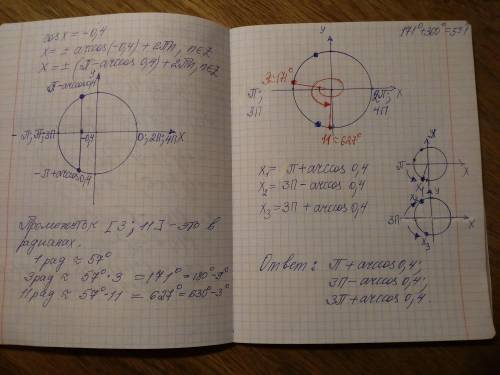 cos x = -0,4
x = ± arccos(-0,4) + 2πn, n∈Z
x = ± (π - arccos 0,4) + 2πn, n∈Z
π-arccos 0,4
y
-π; π; 3π
-0,4
0; 2π; 4π
x
-π + arccos 0,4
Промежуток [3; 11] - это в
радианах.
1 рад ≈ 57°
3 рад ≈ 57° · 3 = 171° = 180° - 9°
11 рад ≈ 57° · 11 = 627° = 630° - 3°
171° + 360° = 531
y
3 ≈ 171°
π;
3π
2π;
4π
x
11 ≈ 627°
x₁ = π + arccos 0,4
x₂ = 3π - arccos 0,4
x₃ = 3π + arccos 0,4
y
π
x
x₁
x₂
y
3π
x
x₃
Ответ: π + arccos 0,4;
3π - arccos 0,4;
3π + arccos 0,4.